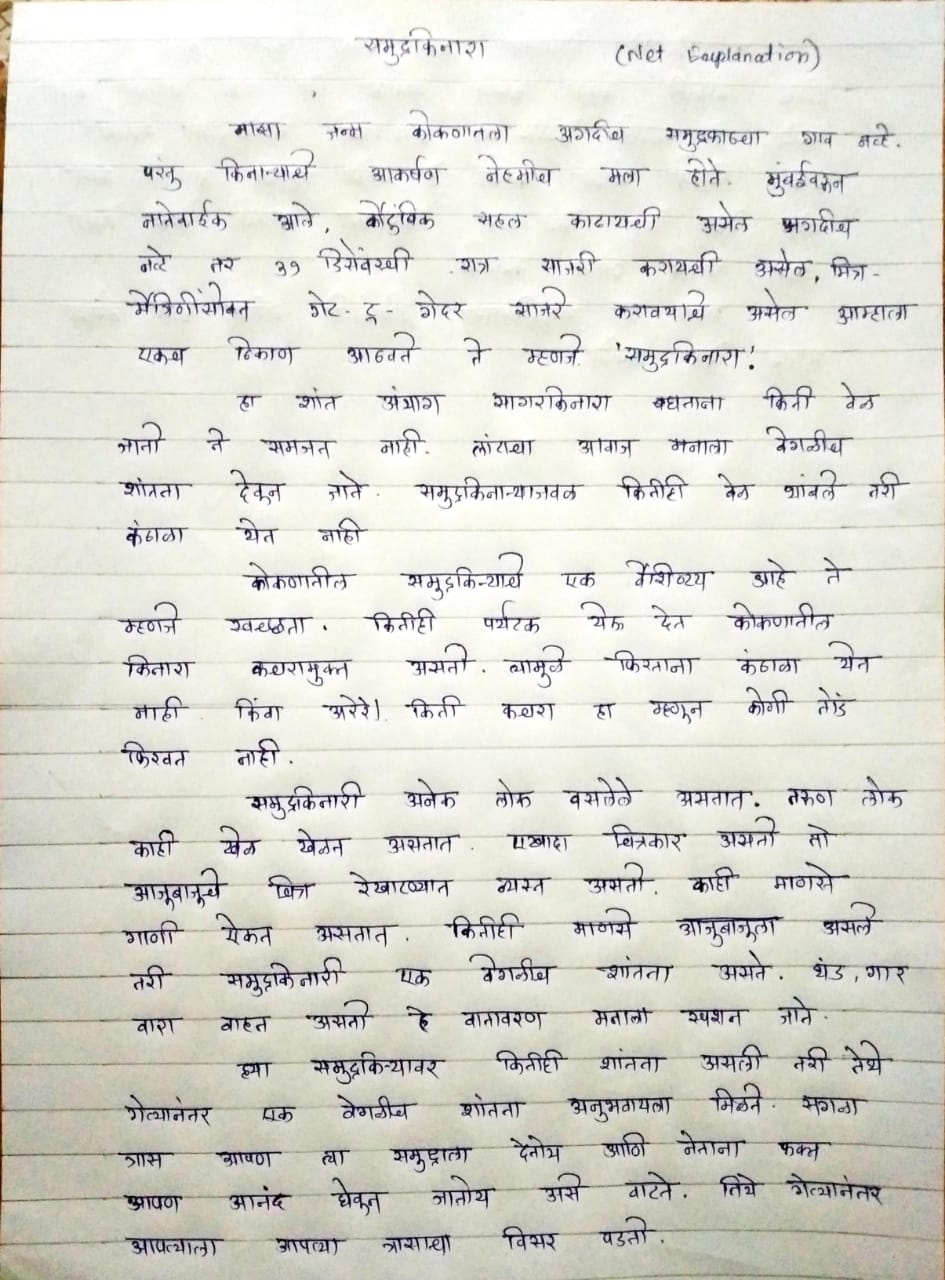 समुद्रकिनारा (Net Explanation)
माझा जन्म कोकणातला अगदीच समुद्रकाठच्या गाव नव्हे.
परंतु किनाऱ्याचे आकर्षण नेहमीच मला होते. मुंबईवरून
नातेवाईक आले, कौटुंबिक सहल काढायची असेल अगदीच
नव्हे तर ३१ डिसेंबरची रात्र साजरी करायची असेल, मित्र-
मैत्रिणींसोबत गेट-टू-गेदर साजरे करावयाचे असेल आम्हाला
एकच ठिकाण आठवते ते म्हणजे 'समुद्रकिनारा!'
हा शांत अथांग सागरकिनारा बघताना किती वेळ
जातो ते समजत नाही. लाटांचा आवाज मनाला वेगळीच
शांतता देवून जाते. समुद्रकिनाऱ्याजवळ कितीही वेळ थांबले तरी
कंठाळा येत नाही
कोकणातील समुद्रकिन्याचे एक वैशिष्ट्य आहे ते
म्हणजे स्वच्छता. कितीही पर्यटक येऊ देत कोकणातील
किनारा कचरामुक्त असतो. त्यामुळे फिरताना कंठाळा येत
नाही किंवा अरेरे! किती कचरा हा म्हणून कोणी तोंड
फिरवत नाही.
समुद्रकिनारी अनेक लोक बसलेले असतात. तरुण लोक
काही खेळ खेळत असतात. एखादा चित्रकार असतो तो
आजूबाजूचे चित्र रेखाटण्यात व्यस्त असतो. काही माणसे
गाणी ऐकत असतात. कितीही माणसे आजुबाजुला असले
तरी समुद्रकिनारी एक वेगळीच शांतता असते. थंड, गार
वारा वाहत असतो हे वातावरण मनाला स्पर्शून जाते.
ह्या समुद्रकिन्यावर कितीही शांतता असली तरी तेथे
गेल्यानंतर एक वेगळीच शांतता अनुभवायला मिळते. सगळा
त्रास आपण त्या समुद्राला देतोय आणि नेताना फक्त
आपण आनंद घेवून जातोय असे वाटते. तिथे गेल्यानंतर
आपल्याला आपल्या त्रासाचा विसर पडतो.